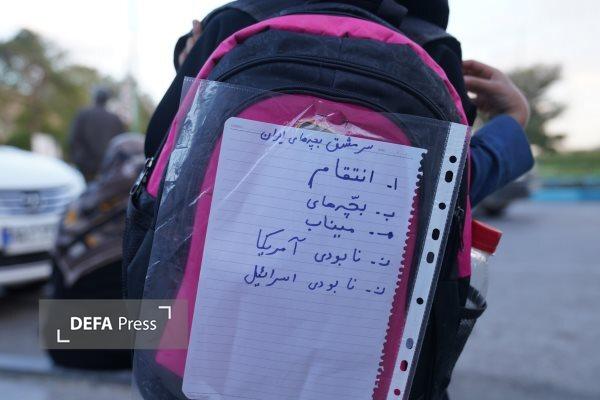 سرمشق بچه‌های ایران
ا. انتقام
ب. بچّه‌های
م. میناب
ن. نابودی آمریکا
ن. نابودی اسرائیل
DEFA Press